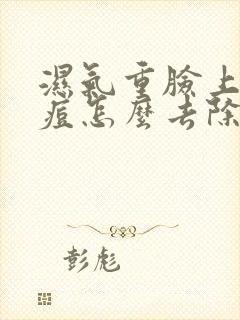 濕氣重臉上
痘怎麼去除
彭彪